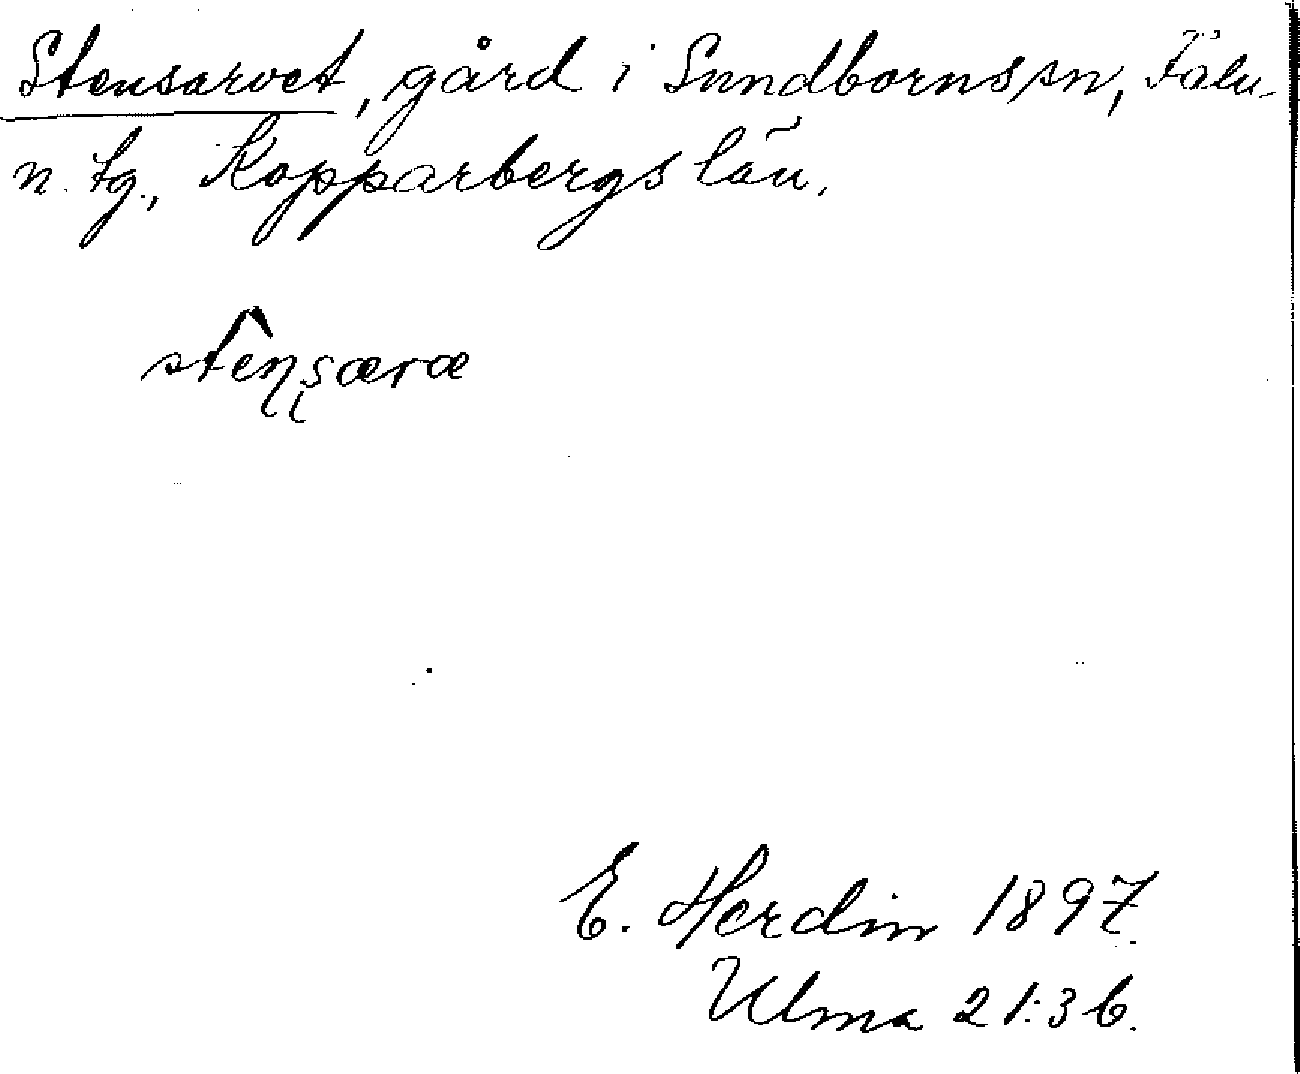 Stensarvet, gård i Sundborns sn, Falu-
n. tg., Kopparbergs län.
stên̢s̢æræ
E. Herdin 1897.
Ulma 21:36.